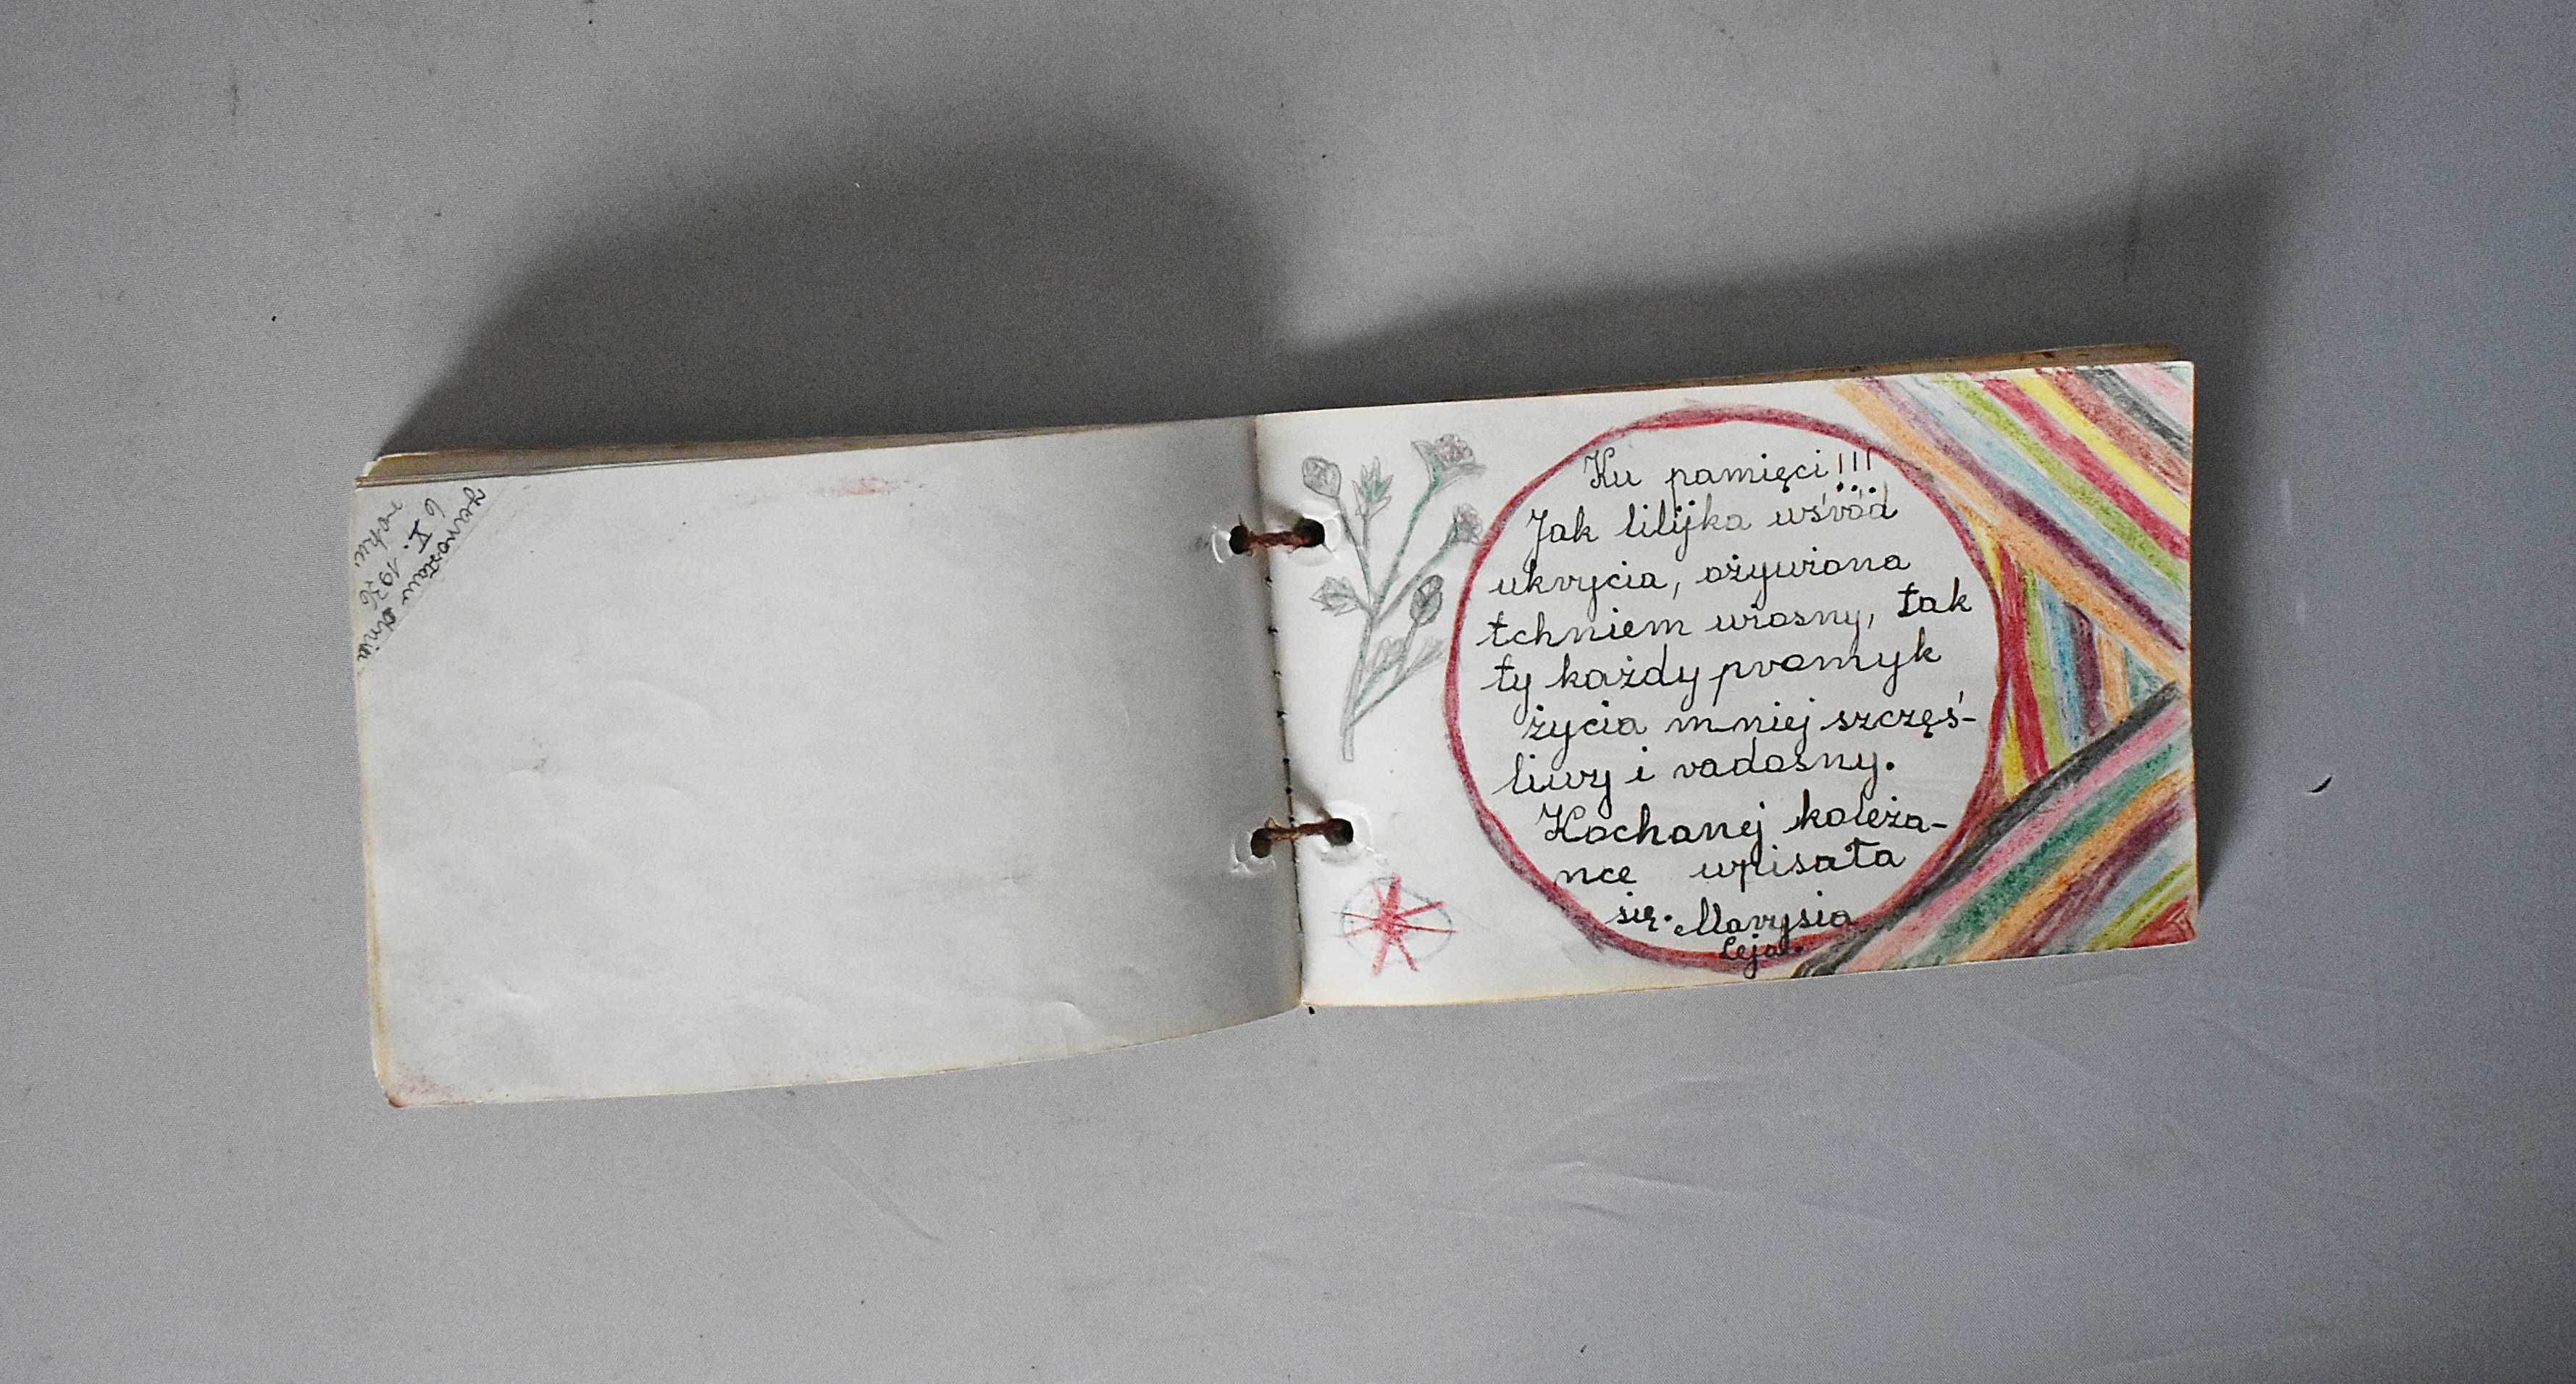 dnia
6 X. 1976
roku
Ku pamięci!!!
Jak lilijka wśród
ukrycia, ożywiona
tchniem wiosny, tak
ty każdy promyk
życia mniej szczęś-
liwy i radosny.
Kochanej koleża-
nce wpisała
się. Marysia
Leja.